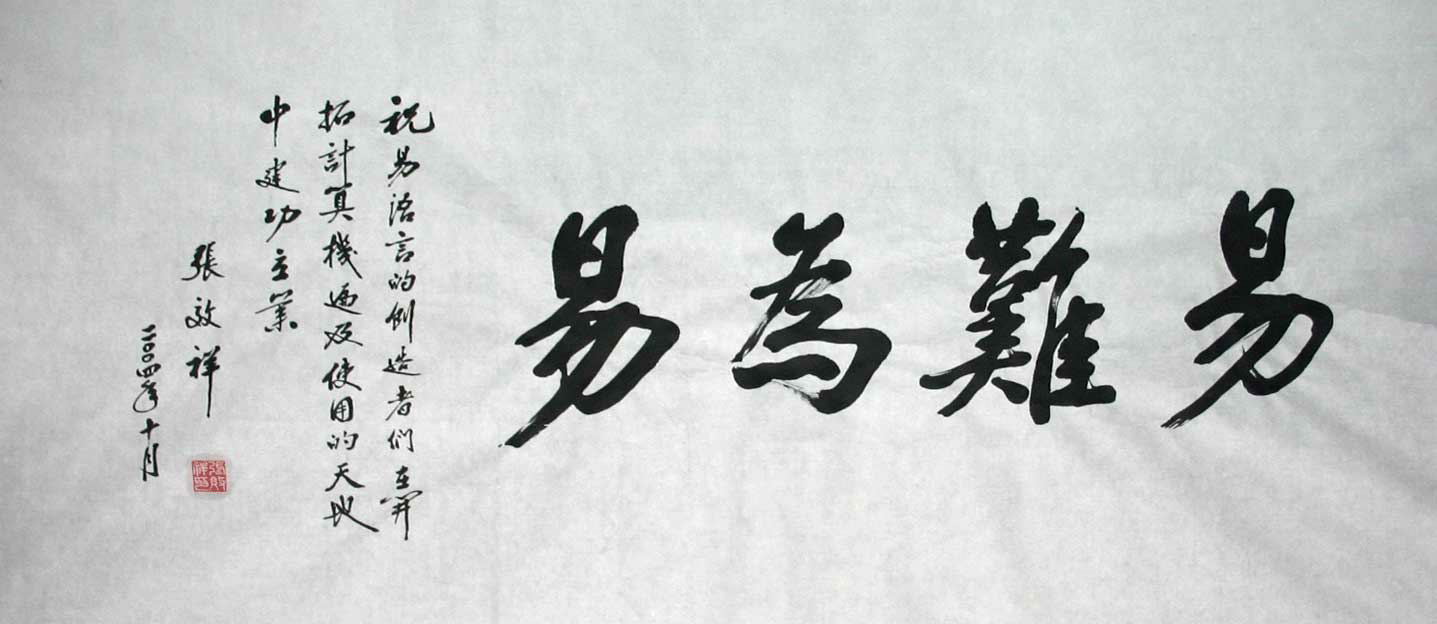 易難為易
祝易语言的创造者们在開
拓計算機遍及使用的天地
中建功立業
張效祥
二〇〇四年十月